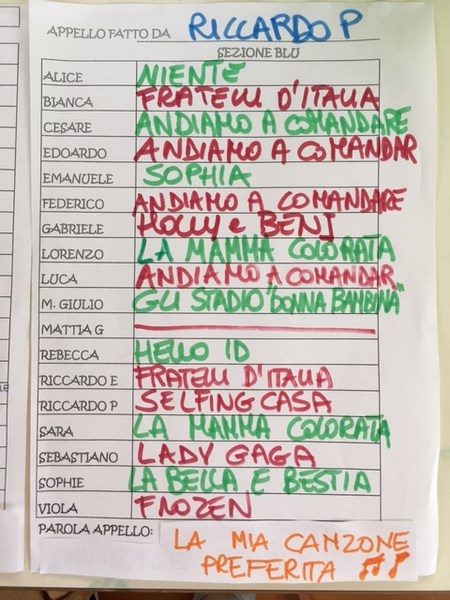 APPELLO FATTO DA RICCARDO P
SEZIONE BLU
ALICE NIENTE
BIANCA FRATELLI D'ITALIA
CESARE ANDIAMO A COMANDARE
EDOARDO ANDIAMO A COMANDAR
EMANUELE SOPHIA
FEDERICO ANDIAMO A COMANDARE
GABRIELE HOLLY e BENJ
LORENZO LA MAMMA COLORATA
LUCA ANDIAMO A COMANDAR
M. GIULIO GLI STADIO "DONNA BAMBINA"
MATTIA G
REBECCA HELLO ID
RICCARDO E FRATELLI D'ITALIA
RICCARDO P SELFING CASA
SARA LA MAMMA COLORATA
SEBASTIANO LADY GAGA
SOPHIE LA BELLA E BESTIA
VIOLA FROZEN
PAROLA APPELLO: LA MIA CANZONE
PREFERITA